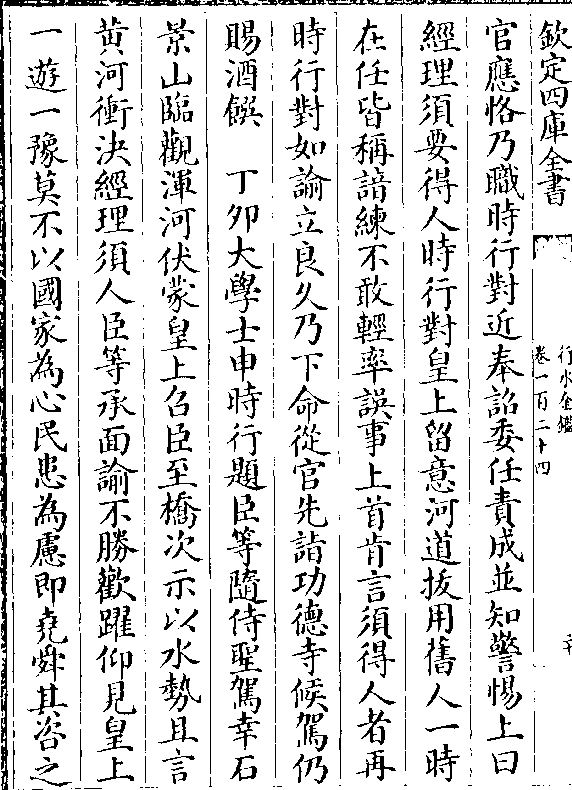 欽定四庫全書
行水金鑑
卷一百二十四
官應恪乃職時行對近奉詔委任責成並知警惕上曰
經理須要得人時行對皇上留意河道拔用舊人一時
在任皆稱諳練不敢輕率誤事上首肯言須得人者再
時行對如諭立良久乃下命從官先詣功德寺候駕仍
賜酒饌　丁卯大學士申時行題臣等隨侍聖駕幸石
景山臨觀渾河伏蒙皇上召臣至橋次示以水勢且言
黄河衝決經理須人臣等承面諭不勝歡躍仰見皇上
一遊一豫莫不以國家為心民患為慮即堯舜其咨之